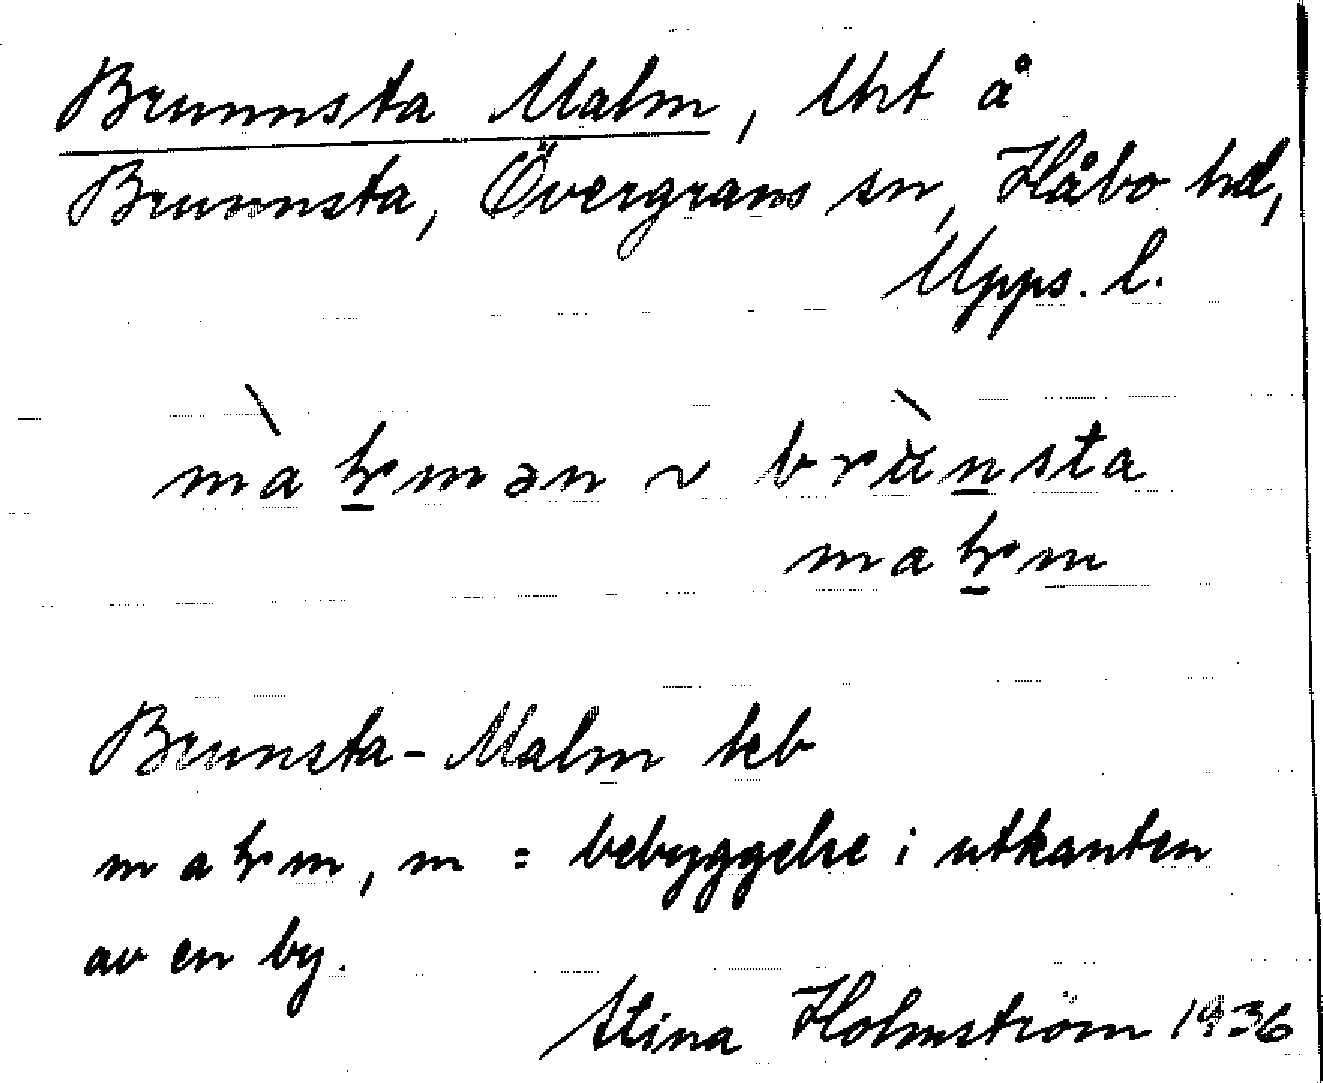 Brunnsta Malm, lht å
Brunnsta, Övergrans sn, Håbo hd,
Upps. l.
màɽmən ~ brùnsta
maɽm
Brunsta-Malm keb
maɽm, m = bebyggelse i utkanten
av en by.
Stina Holmström 1936